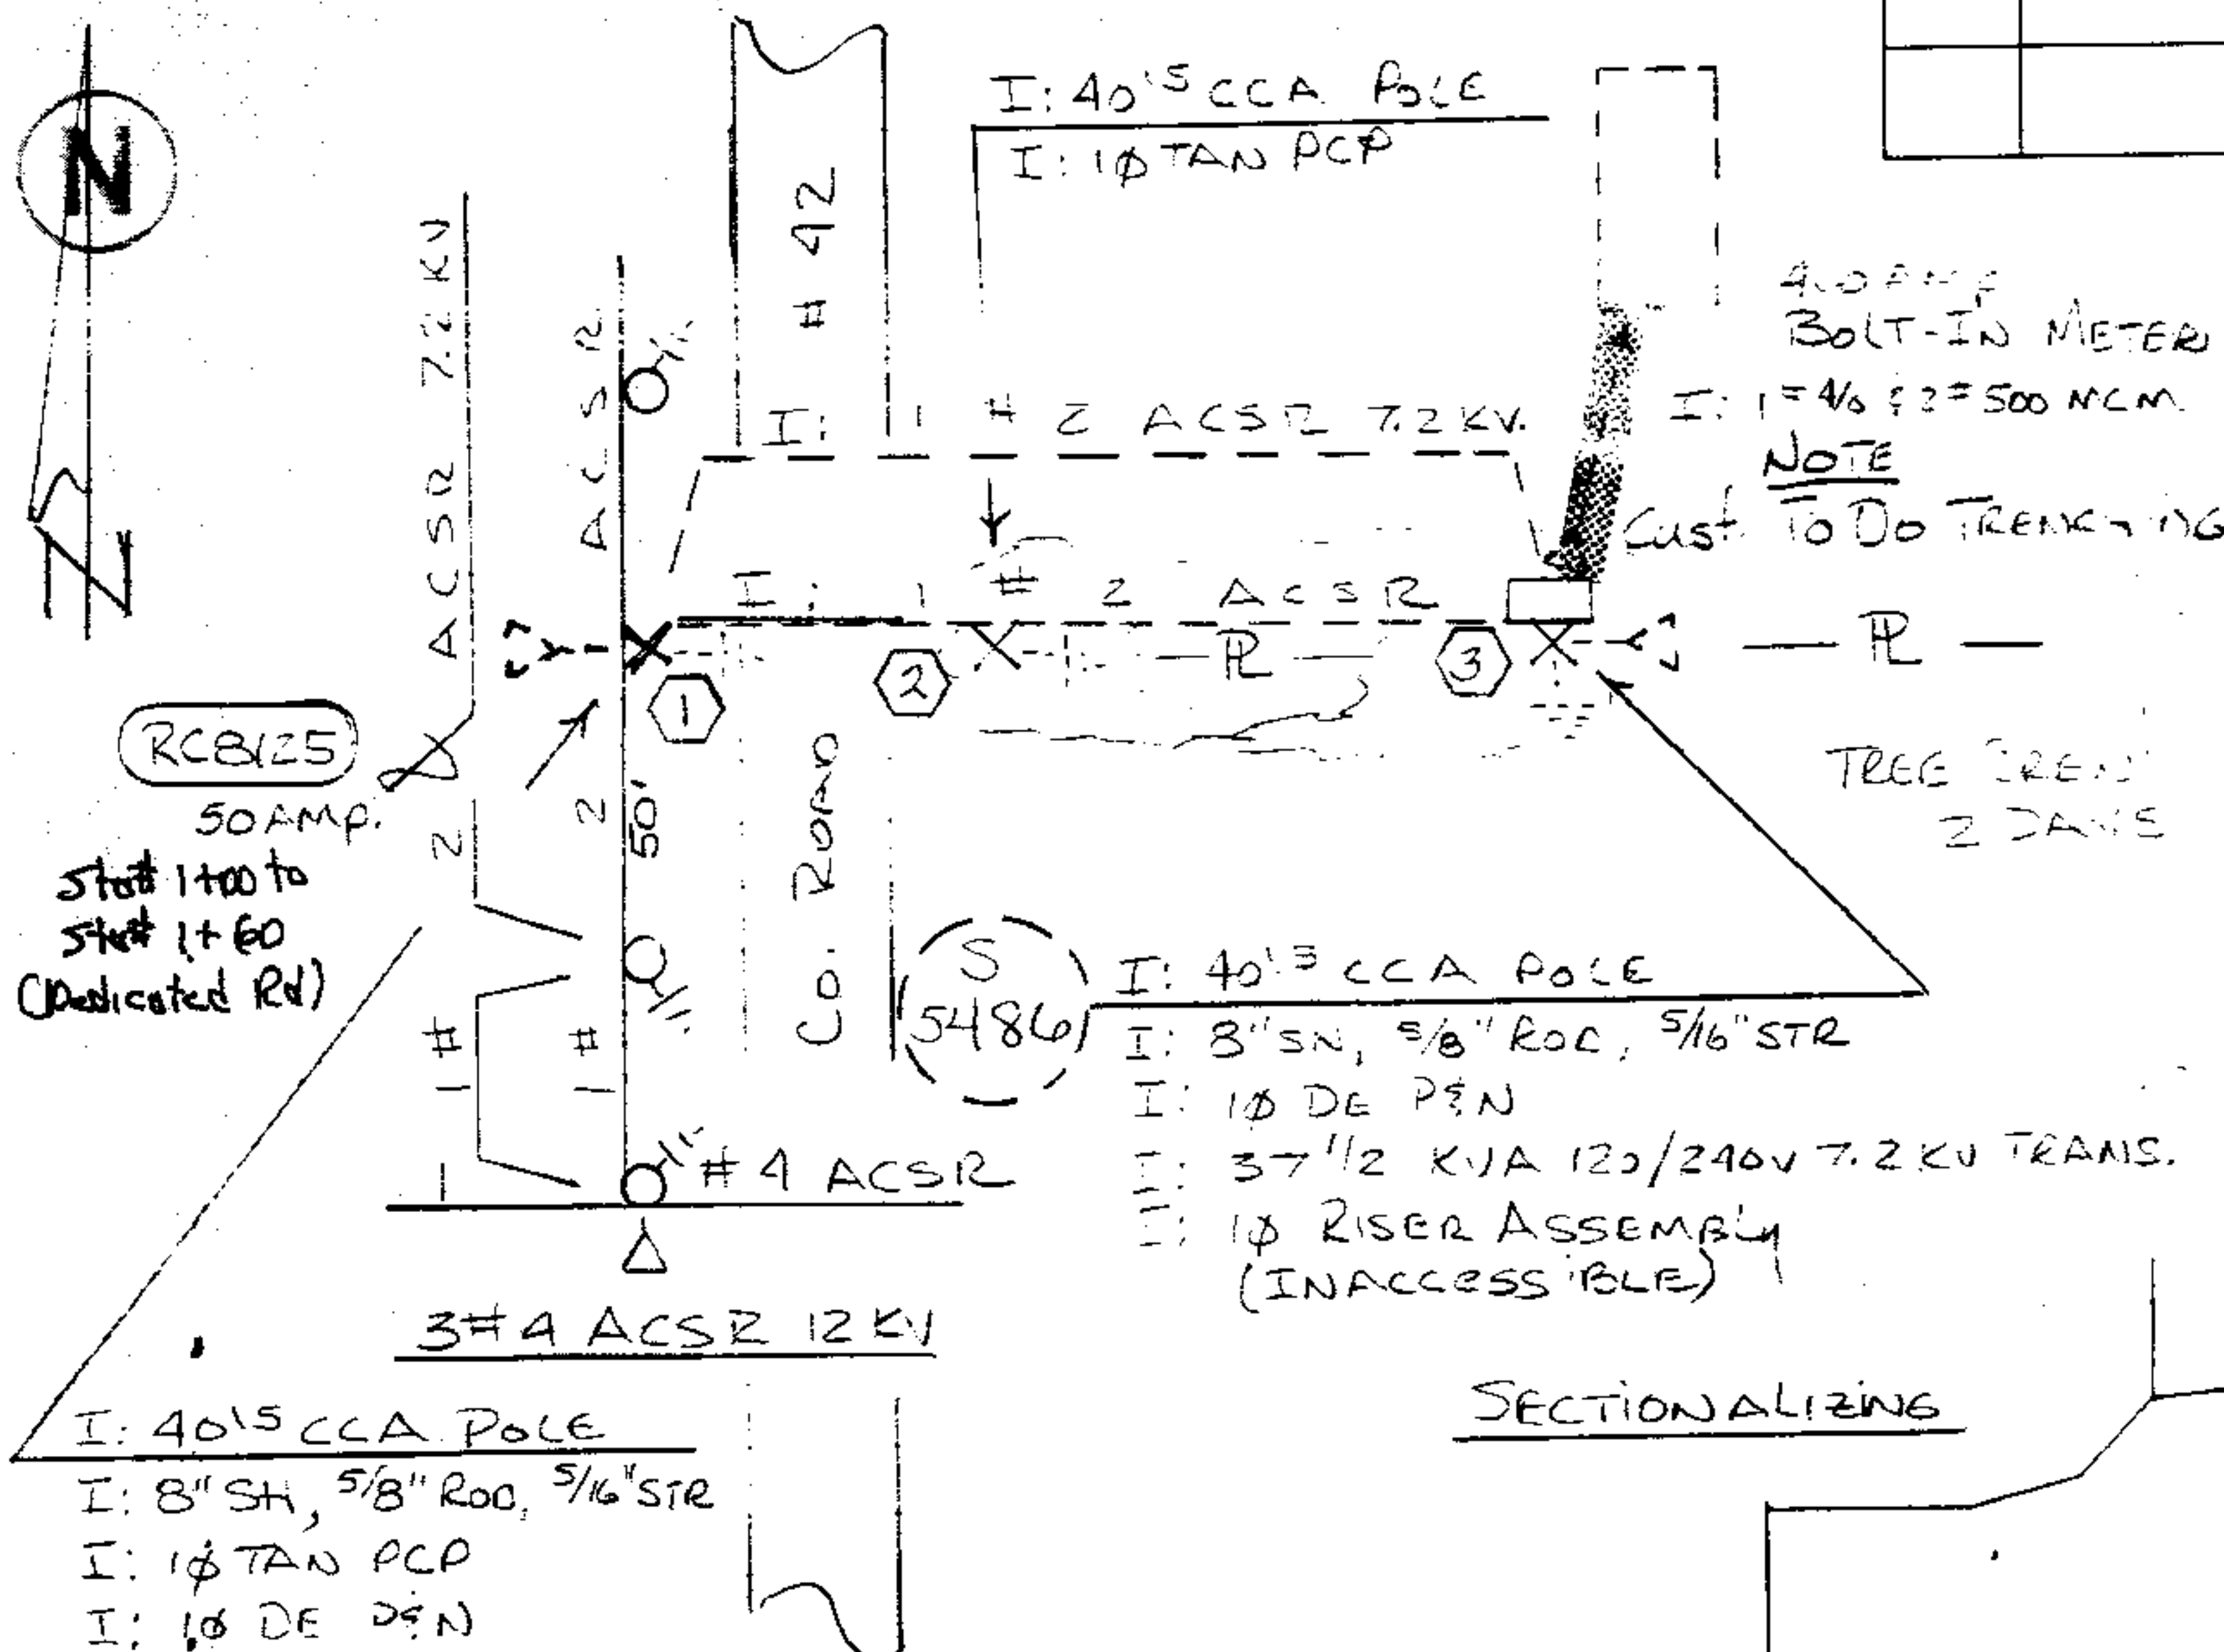 N
I: 40'5 CCA POLE
I: 1Ø TAN PCP
# 42
1 # 2 ACSR 7.2 KV
1 # 2 ACSR
50'
BOLT-IN METER
I: 1= 4/0 & 2= 500 MCM
NOTE
Cust. To Do TRENCHING
I: 1 # 2 ACSR 7.2 KV.
I: 1 # 2 ACSR
1
2
PL
3
PL
RC8125
50 AMP.
Sta# 1+00 to
Sta# 1+60
(Dedicated Rd)
CO. ROAD
TREE CREW
2 DAYS
S
5486
I: 40'5 CCA POLE
I: 8" SN, 5/8" ROD, 5/16" STR
I: 1Ø DE P&N
I: 37 1/2 KVA 120/240V 7.2 KV TRANS.
I: 1Ø RISER ASSEMBLY
(INACCESSIBLE)
#4 ACSR
3#4 ACSR 12 KV
SECTIONALIZING
I: 40'5 CCA POLE
I: 8" SH, 5/8" ROD, 5/16" STR
I: 1Ø TAN PCP
I: 1Ø DE P&N